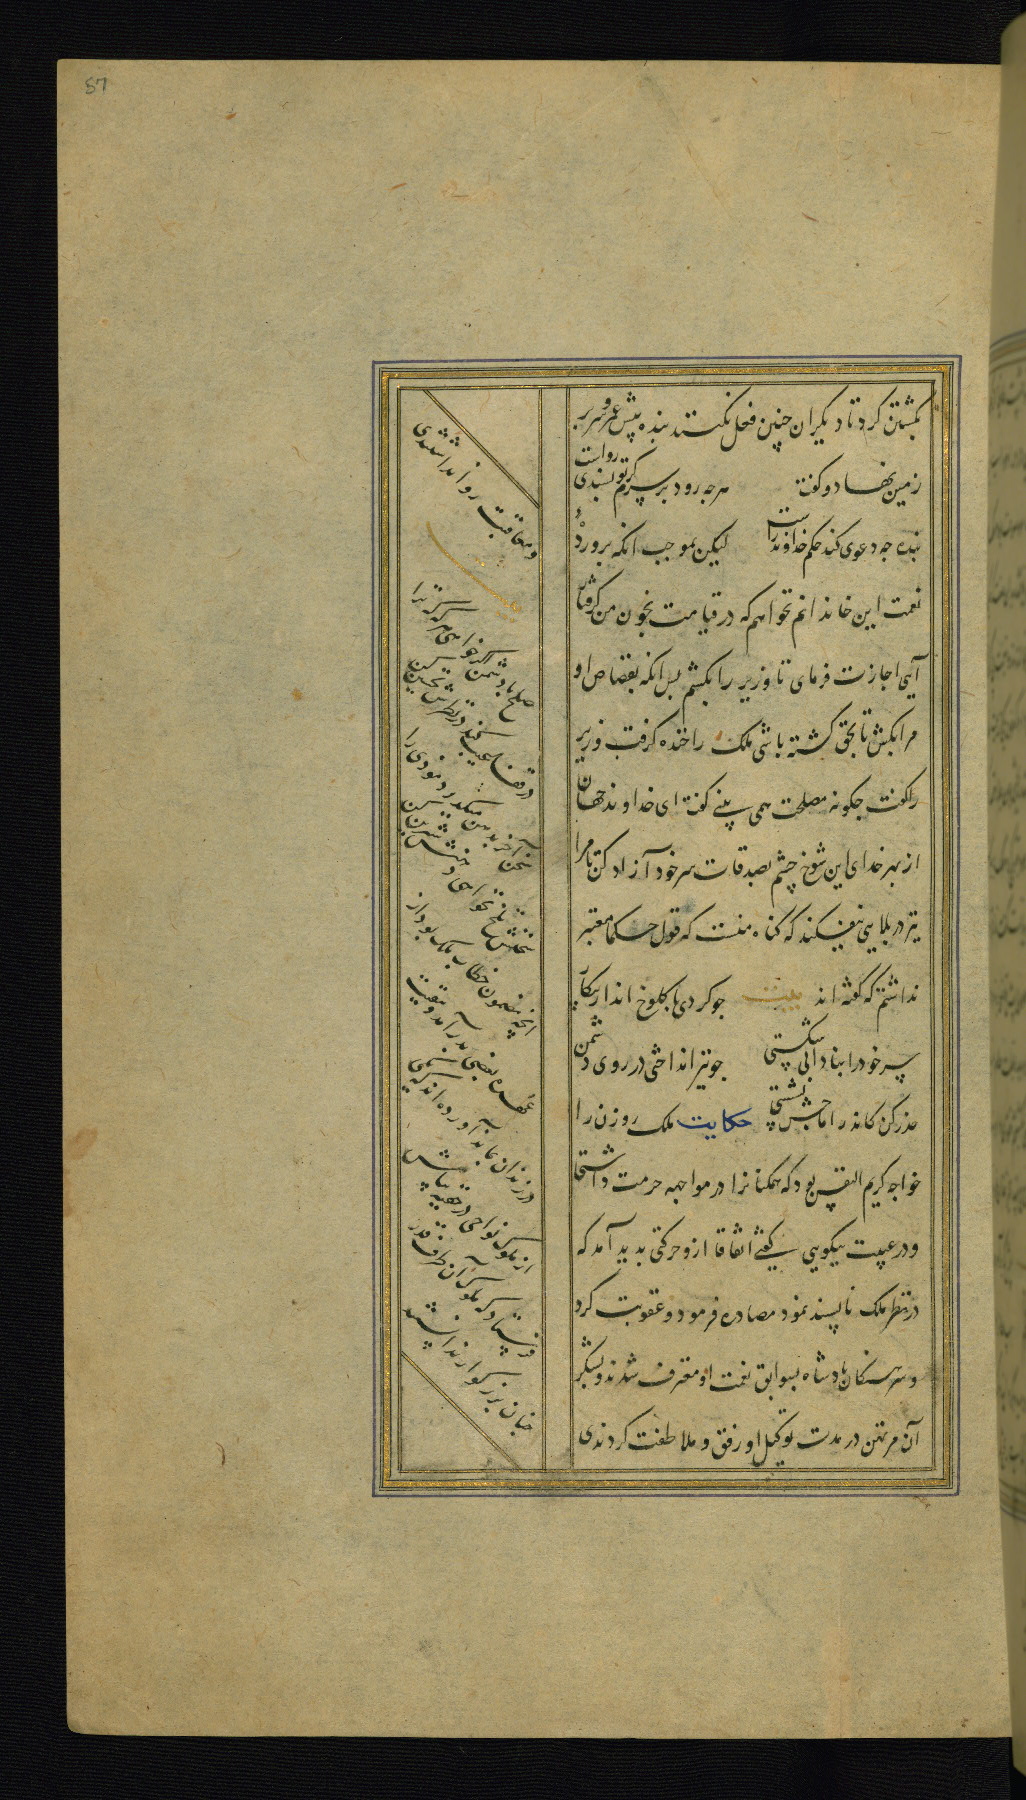 57
بکشتن کرد تا دیگران چنین فعل نکنند بنده پیش عمرو سر بر
زمین نهاد و گفت هرچه رود بر سرم گر تو پسندی رواست
بنده چه دعوی کند حکم خداوند راست لیکن بموجب آنکه پروردهٔ
نعمت این خاندانم نخواهم که در قیامت بخون من گرفتار
آیی اجازت فرمای تا وزیر را بکشم پس آنکه بقصاص او
مرا بکش تا بحق کشته باشی ملک را خنده گرفت وزیر
را گفت چگونه مصلحت همی بینی گفت ای خداوند جهان
از بهر خدای این شوخ چشم بصدقات سر خود آزاد کن تا مرا
نیز در بلایی نیفکند که گناه منست که قول حکما معتبر
نداشتم که گفته اند بیت چو کردی با کلوخ انداز پیکار
سر خود را بنادانی شکستی چو تیر انداختی در روی دشمن
حذر کن کاندر آماجش نشستی حکایت ملک زوزن را
خواجه کریم النفس بود که همگنانرا در مواجهه حرمت داشتی
و در غیبت نیکویی گفتی اتفاقا ازو حرکتی پدید آمد که
در نظر ملک ناپسند نمود مصادره فرمود و عقوبت کرد
و سرهنگان پادشاه بسوابق نعمت او معترف شدند و بشکر
آن مرتهن در مدت توکیل او رفق و ملاطفت کردندی
و معاقبت روا نداشتندی
صلح با دشمن اگر خواهی هر گه که ترا
در قفا عیب کند در نظرش تحسین کن
سخن آخر بدهن میگذرد موذی را
سخنش تلخ نخواهی دهنش شیرین کن
آنچه مضمون خطاب ملک بود از
عهده بعضی بدر آمد و بقیت
در زندان بماند آورده اند که یکی
از ملوک نواحی در خفیه پیامش
فرستاد که ملوک آن طرف قدر
چنان بزرگوار ندانستند